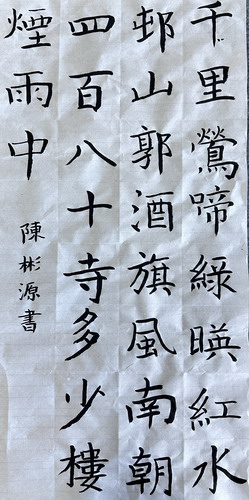 千里鶯啼綠暎紅水
邨山郭酒旗風南朝
四百八十寺多少樓
煙雨中
陳彬源書